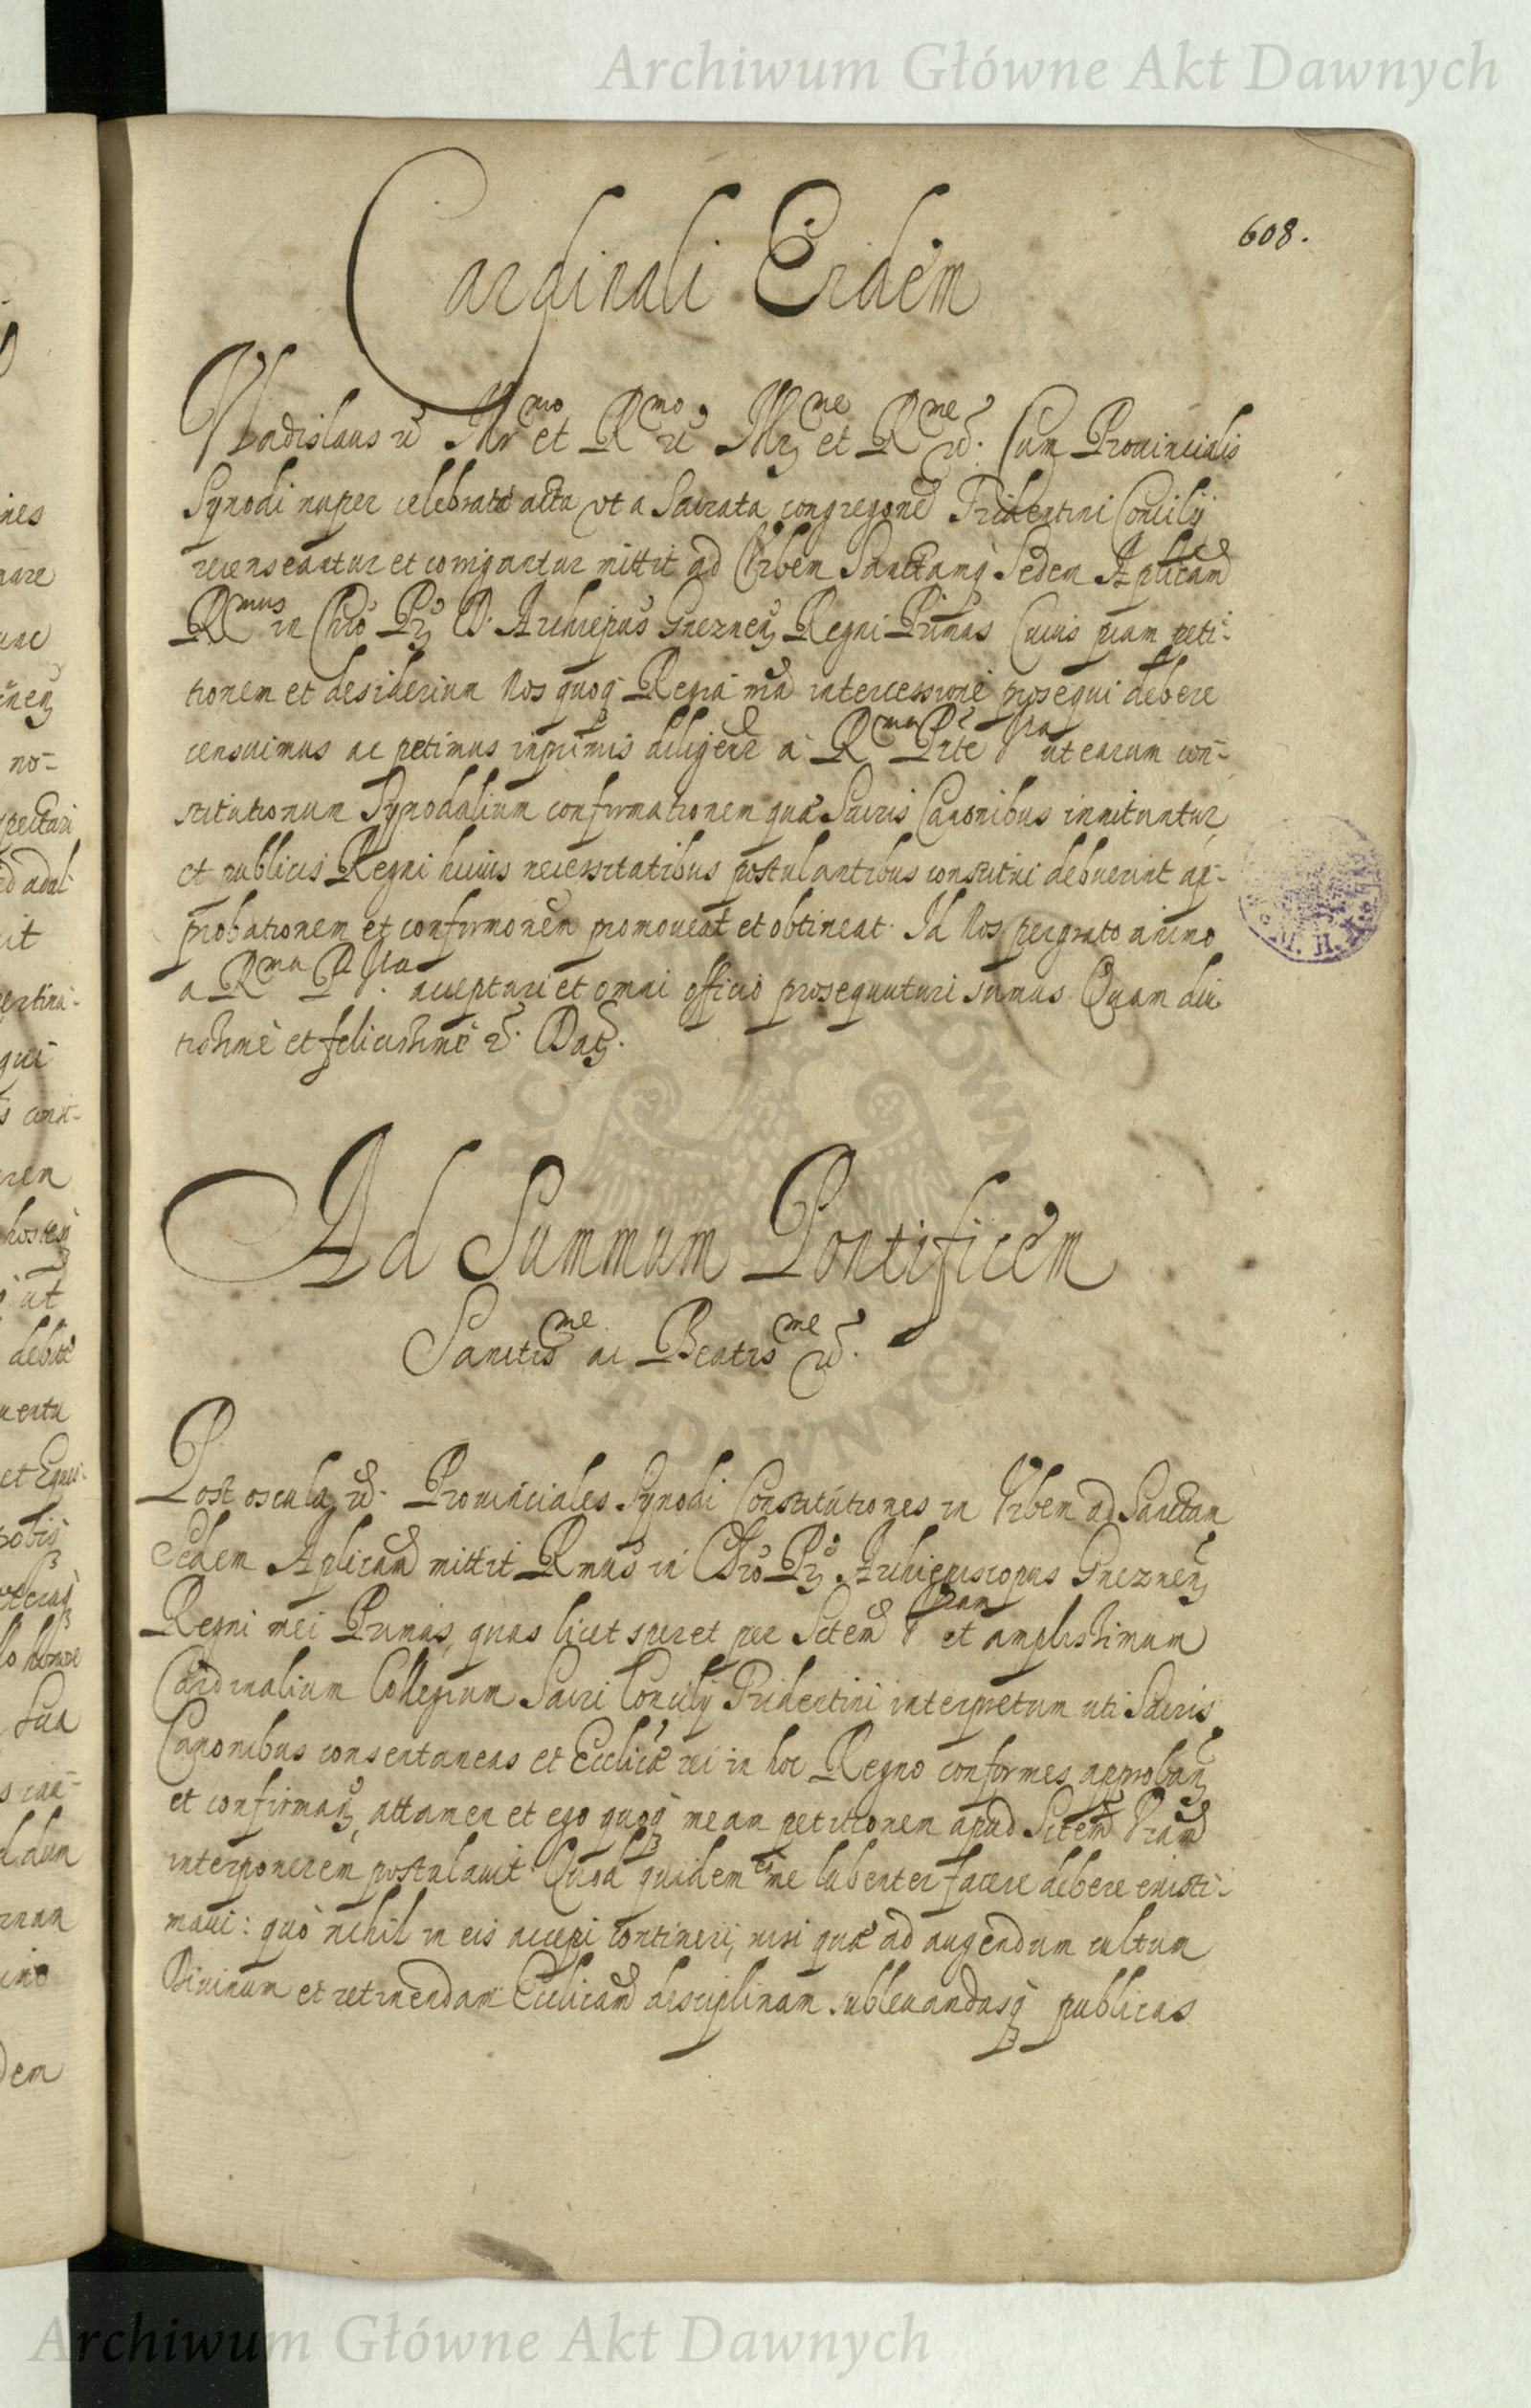 Archiwum Główne Akt Dawnych
608.
Cardinali Eidem
Vladislaus etc Illmo et Rmo etc Illme et Rme etc. Cum Prouincialis
Synodi nuper celebratæ acta vt a Sacrata congregone Tridentini Concilij
recenseantur et corrigantur mittit ad Vrbem Sanctamq Sedem Aplicam
Rmus in Chro Pr D. Archiepus Gneznen Regni Primas Cuius piam peti-
tionem et desiderium Nos quoq Regia nra intercessione prosequi debere
censuimus ac petimus inprimis diligenr a Rma Pte Vra ut earum con-
stitutionum Synodalium confirmationem quæ Sacris Canonibus innituntur
et publicis Regni huius necessitatibus postulantibus constitui debuerint ap-
probationem et confirmonem promoueat et obtineat. Id Nos pergrato animo
a Rma P Vra. accepturi et omni officio prosequuturi sumus Quam diu
tissime et felicissime etc. Dat.
Ad Summum Pontificem
Sanctisme ac Beatisme etc.
Post oscula etc. Prouinciales Synodi Constitutiones in Vrbem ad Sanctam
Sedem Aplicam mittit Rmus in Chro Pr Archiepiscopus Gneznen
Regni mei Primas, quas licet speret per Sctem Vram et amplissimum
Cardinalium Collegium Sacri Concilij Tridentini interpretum uti Sacris
Canonibus consentaneas et Ecclicæ rei in hoc Regno conformes approban
et confirman, attamen et ego quoq meam petitionem apud Sctem Vram
interponerem postulauit. Quod quidem eo me lubenter facere debere existi-
maui: quo nihil in eis accepi contineri, nisi quæ ad augendum cultum
Diuinum et retinendam Ecclicam disciplinam subleuandasq publicas
Archiwum Główne Akt Dawnych